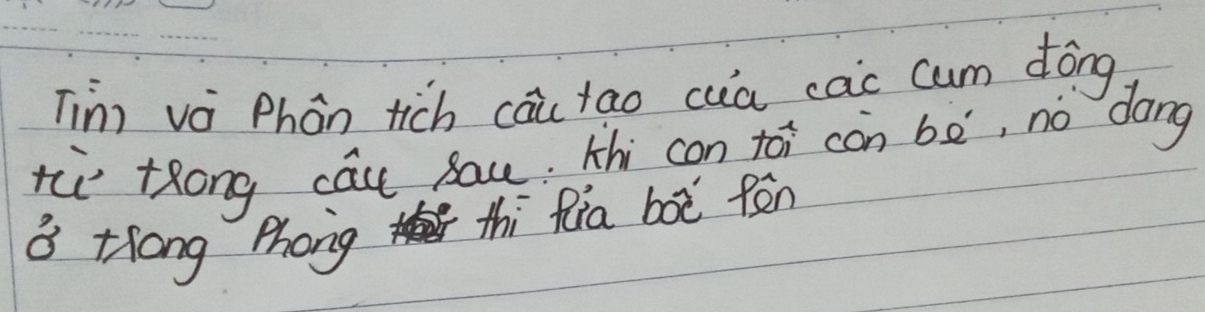 Tìm và Phân tích cấu tạo của các cụm động
từ trong câu sau: Khi con tôi còn bé, nó đang
ở trong Phòng thì lửa bốc lên